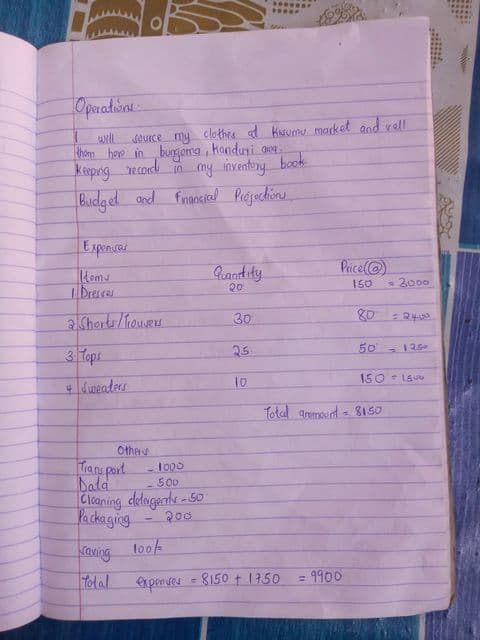 Operations.
I will source my clothes at Kisumu market and sell
them here in bungoma, Kanduyi area.
Keeping records in my inventory book.
Budget and Financial Projections
Expenses
Items Quantity Price(@)
1 Dresses 20 150 = 3000
2 Shorts/Trousers 30 80 = 2400
3 Tops 25 50 = 1250
4 Sweaters 10 150 = 1500
Total ammount = 8150
Others
Transport - 1000
Data - 500
Cleaning detergents - 50
Packaging - 200
Saving 100/=
Total expenses = 8150 + 1750 = 9900